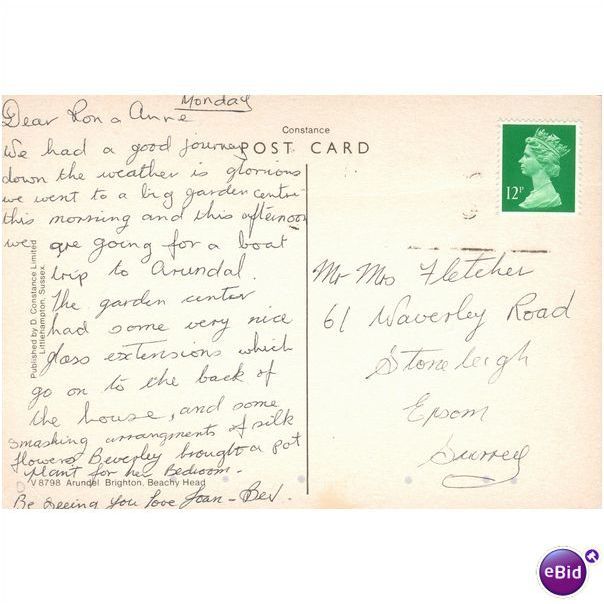 Monday
Dear Ron & Anne
We had a good journey
down the weather is glorious
we went to a big garden centre
this morning and this afternoon
we are going for a boat
trip to Arundal.
The garden center
had some very nice
glass extensions which
go on to the back of
the house, and some
smashing arrangments of silk
flowers Beverley brought a pot
plant for her Bedroom.
Be seeing you Love Joan - Bev.
Constance
POST CARD
Published by D. Constance Limited
Littlehampton, Sussex.
V8798 Arundel Brighton, Beachy Head
12P
Mr Mrs Fletcher
61 Waverley Road
Stoneleigh
Epsom
Surrey
eBid